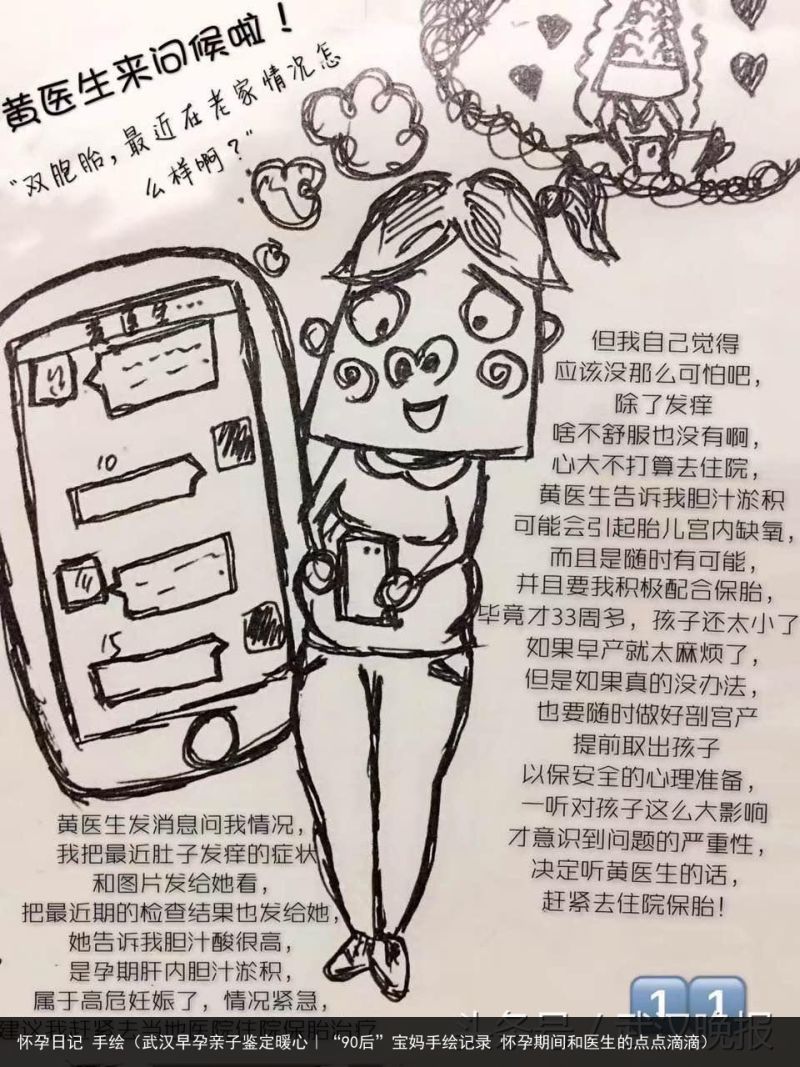 黄医生来问候啦！
“双胞胎，最近在老家情况怎
么样啊？”
黄医生...
10
15
但我自己觉得
应该没那么可怕吧，
除了发痒
啥不舒服也没有啊，
心大不打算去住院，
黄医生告诉我胆汁淤积
可能会引起胎儿宫内缺氧，
而且是随时有可能，
并且要我积极配合保胎，
毕竟才33周多，孩子还太小了
如果早产就太麻烦了，
但是如果真的没办法，
也要随时做好剖宫产
提前取出孩子
以保安全的心理准备，
一听对孩子这么大影响
才意识到问题的严重性，
决定听黄医生的话，
赶紧去住院保胎！
黄医生发消息问我情况，
我把最近肚子发痒的症状
和图片发给她看，
把最近期的检查结果也发给她，
她告诉我胆汁酸很高，
是孕期肝内胆汁淤积，
属于高危妊娠了，情况紧急，
建议我赶紧去当地医院住院保胎治疗
11
头条号 / 武汉晚报
怀孕日记 手绘（武汉早孕亲子鉴定暖心｜“90后”宝妈手绘记录 怀孕期间和医生的点点滴滴）